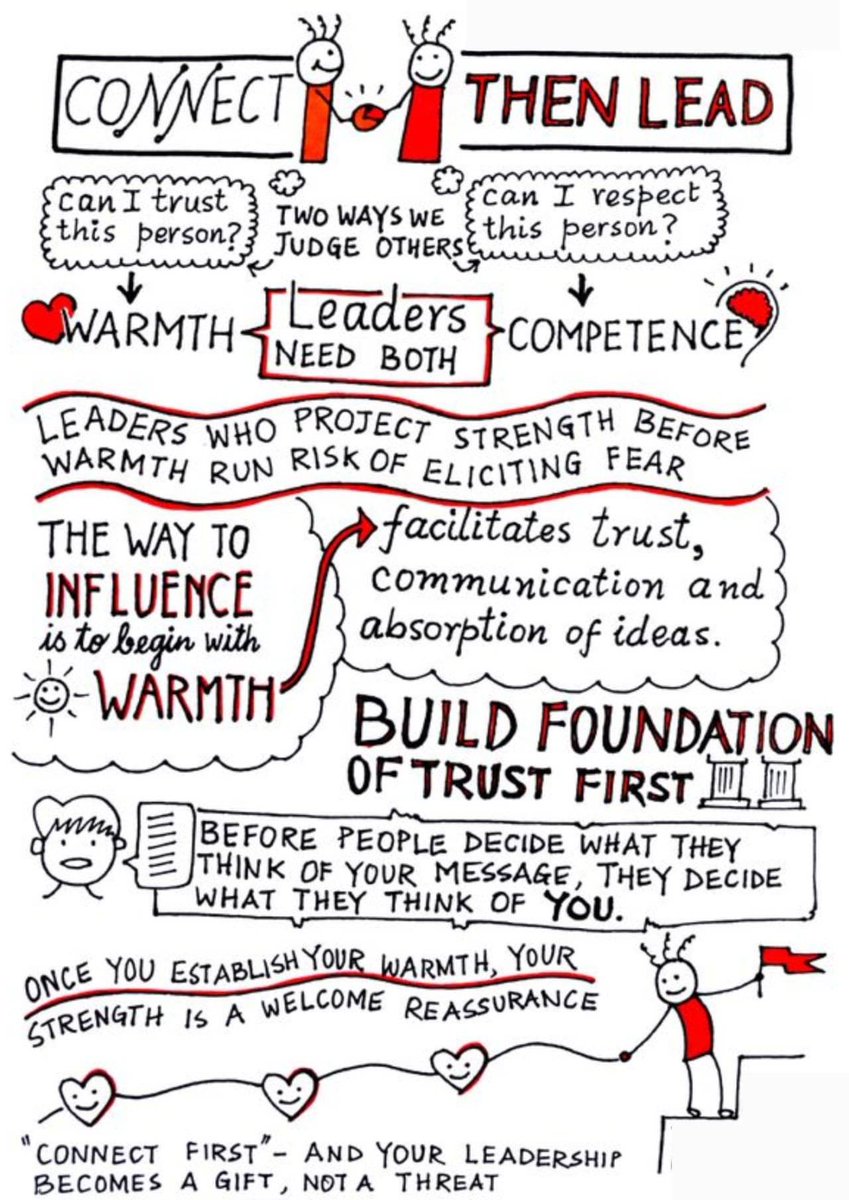 CONNECT THEN LEAD
can I trust
this person?
TWO WAYS WE
JUDGE OTHERS
can I respect
this person?
WARMTH
Leaders
NEED BOTH
COMPETENCE
LEADERS WHO PROJECT STRENGTH BEFORE
WARMTH RUN RISK OF ELICITING FEAR
THE WAY TO
INFLUENCE
is to begin with
WARMTH
facilitates trust,
communication and
absorption of ideas.
BUILD FOUNDATION
OF TRUST FIRST
BEFORE PEOPLE DECIDE WHAT THEY
THINK OF YOUR MESSAGE, THEY DECIDE
WHAT THEY THINK OF YOU.
ONCE YOU ESTABLISH YOUR WARMTH, YOUR
STRENGTH IS A WELCOME REASSURANCE
"CONNECT FIRST" - AND YOUR LEADERSHIP
BECOMES A GIFT, NOT A THREAT